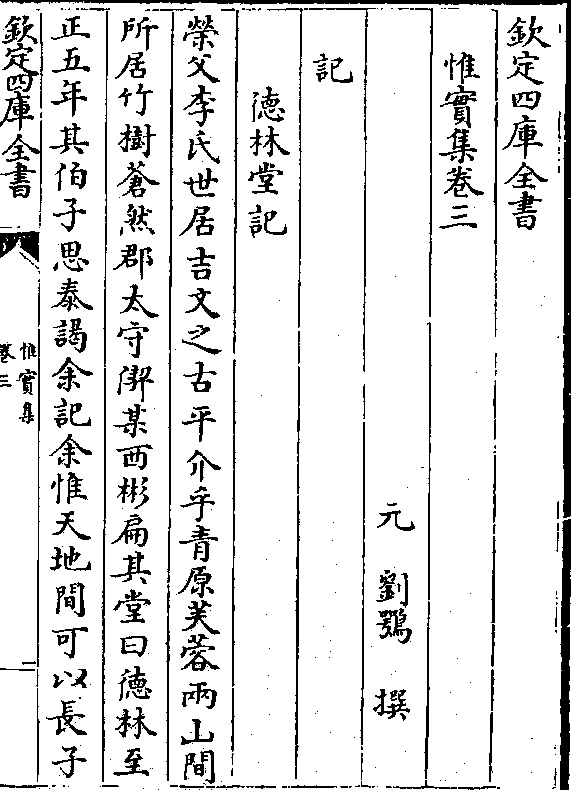 欽定四庫全書
惟實集卷三
元 劉鶚 撰
記
徳林堂記
榮父李氏世居吉文之古平介乎青原芙蓉兩山間
所居竹樹蒼然郡太守某西彬扁其堂曰徳林至
正五年其伯子思泰謁余記余惟天地間可以長子
欽定四庫全書
惟實集
卷三
一